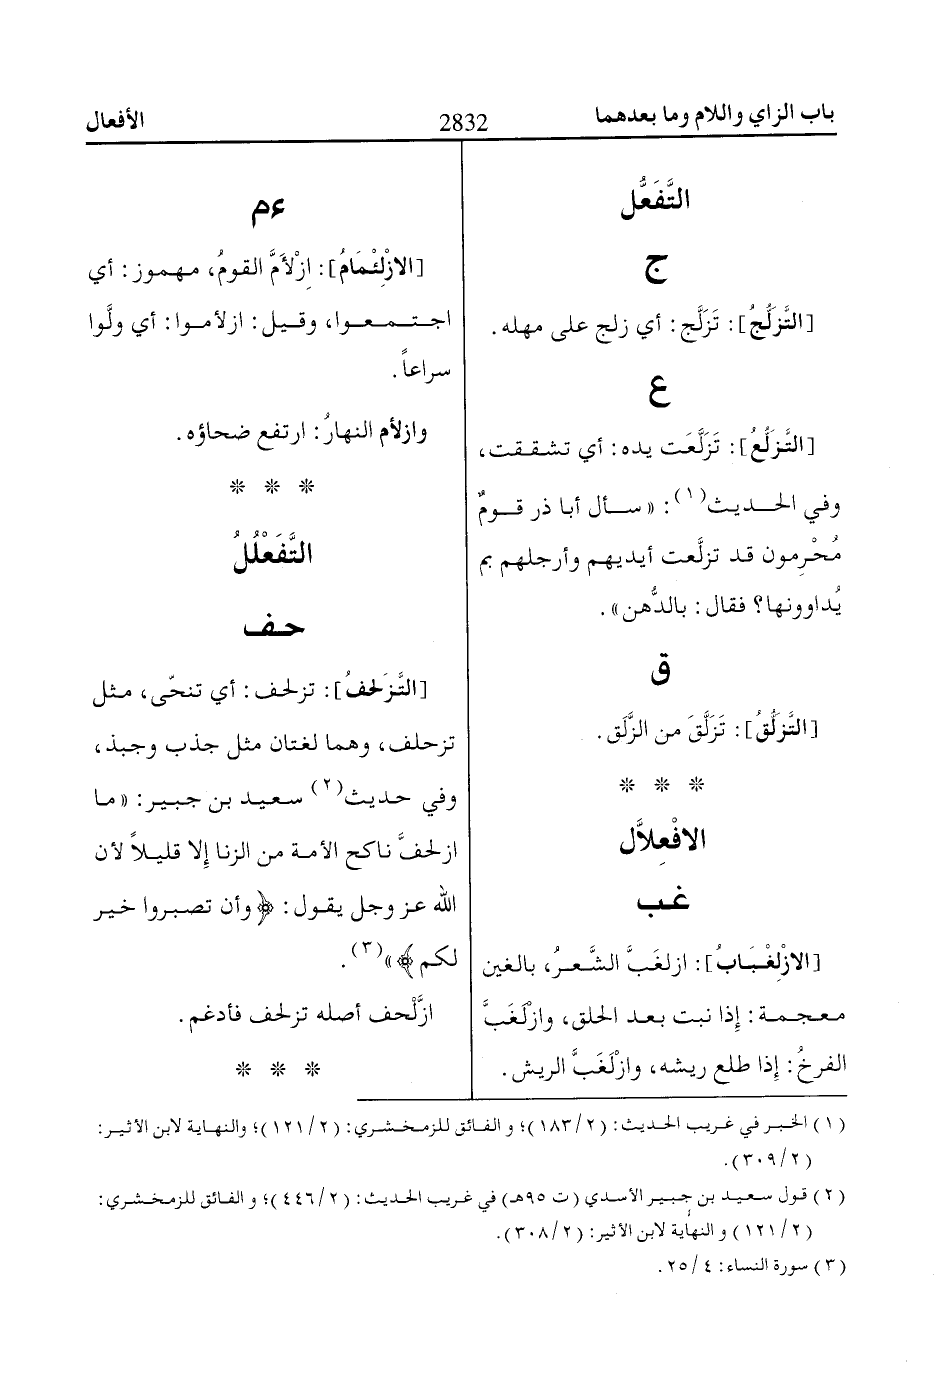 باب الزاي واللام وما بعدهما
2832
الأفعال
التَّفَعُّل
ج
[التَّزَلُّجُ]: تَزَلَّج: أي زلج على مهله.
ع
[التَّزلُّعُ]: تَزَلَّعَت يده: أي تشققت،
وفي الحديث(١): «سأل أبا ذر قومٌ
مُحْرِمون قد تزلَّعت أيديهم وأرجلهم بم
يُداوونها؟ فقال: بالدُّهن».
ق
[التَّزلُّقُ]: تَزَلَّقَ من الزَّلَق.
* * *
الافْعِلاَّل
غب
[الازْلِغْبَابُ]: ازلغَبَّ الشَّعرُ، بالغين
معجمة: إذا نبت بعد الحلق، وازْلَغَبَّ
الفرخُ: إذا طلع ريشه، وازْلَغَبَّ الريش.
ءم
[الازْلِئْمَامُ]: ازْلأَمَّ القومُ، مهموز: أي
اجتمعوا، وقيل: ازلأموا: أي ولَّوا
سراعاً.
وازلأم النهارُ: ارتفع ضحاؤه.
* * *
التَّفَعْلُلُ
حف
[التَّزَلحَفُ]: تزلحف: أي تنحّى، مثل
تزحلف، وهما لغتان مثل جذب وجبذ،
وفي حديث(٢) سعيد بن جبير: «ما
ازلحفَّ ناكح الأمة من الزنا إلا قليلاً لأن
الله عز وجل يقول: ﴿وأن تصبروا خير
لكم﴾»(٣).
ازَّلْحف أصله تزلحف فأدغم.
* * *
(١) الخبر في غريب الحديث: (٢/١٨٣)؛ و الفائق للزمخشري: (٢/١٢١)؛ والنهاية لابن الأثير:
(٢/٣٠٩).
(٢) قول سعيد بن جبير الأسدي (ت ٩٥هـ) في غريب الحديث: (٢/٤٤٦)؛ و الفائق للزمخشري:
(٢/١٢١) و النهاية لابن الأثير: (٢/٣٠٨).
(٣) سورة النساء: ٤/٢٥.